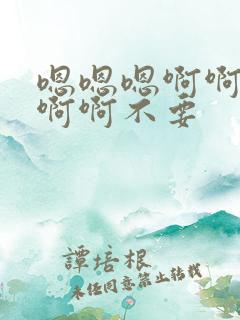 嗯嗯嗯啊啊
啊啊不要
譚培根
未经同意禁止转载